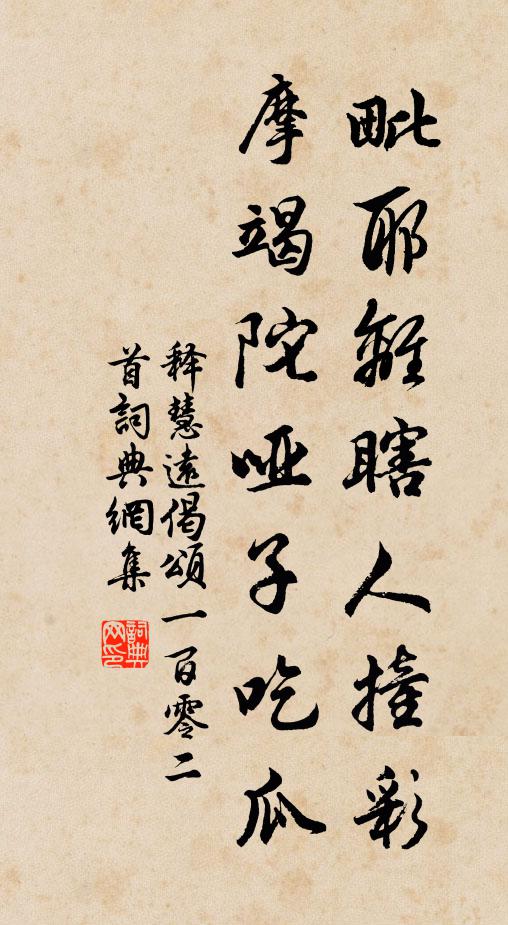 毗耶離瞎人撞彩
摩竭陀哑子吃瓜
释慧遠偈頌一百零二
首詞典網集
詞典
网印